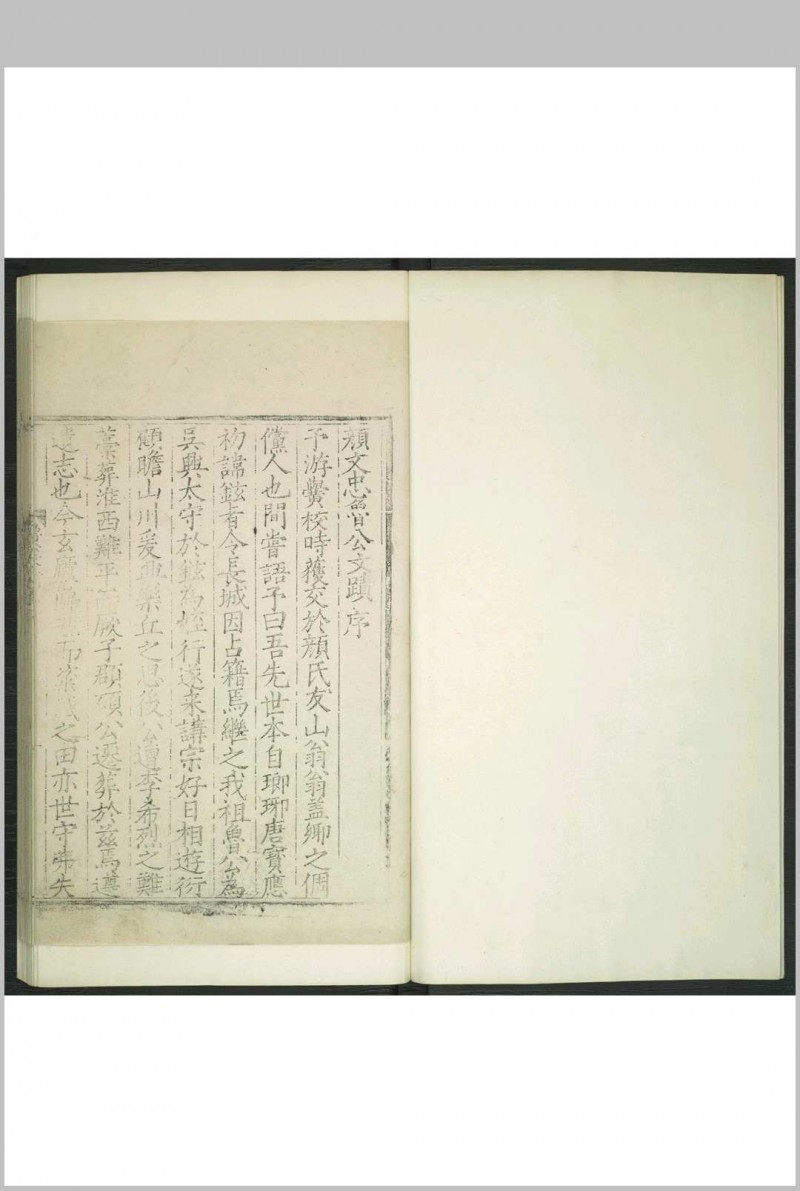 顏文忠魯公文蹟序
予游黌校時獲交於顏氏友山翁翁盖鄉之倜
儻人也間嘗語予曰吾先世本自瑯琊唐寳應
初諱鉉者令長城因占籍焉繼之我祖魯公為
吳興太守於鉉為姪行遂来講宗好日相遊衍
顧瞻山川爰興樂丘之思後公遭李希烈之難
藁葬淮西難平厥子頵碩公遷葬於兹焉遵
遺志也今玄之田亦世守弗失